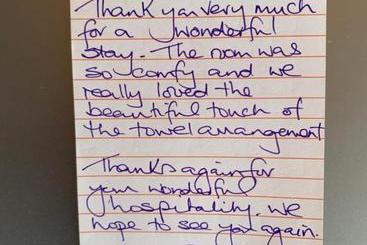 Thank you very much
for a wonderful
stay. The room was
so comfy and we
really loved the
beautiful touch of
the towel arrangement
Thanks again for
your wonderful
hospitality. We
hope to see you again.